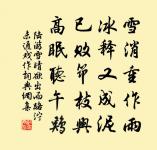 雪消重作雨
冰释又成泥
已败节枝兴
高眠听午鸡
陆游雪晴欲出而路泞
未通戏作词典网集